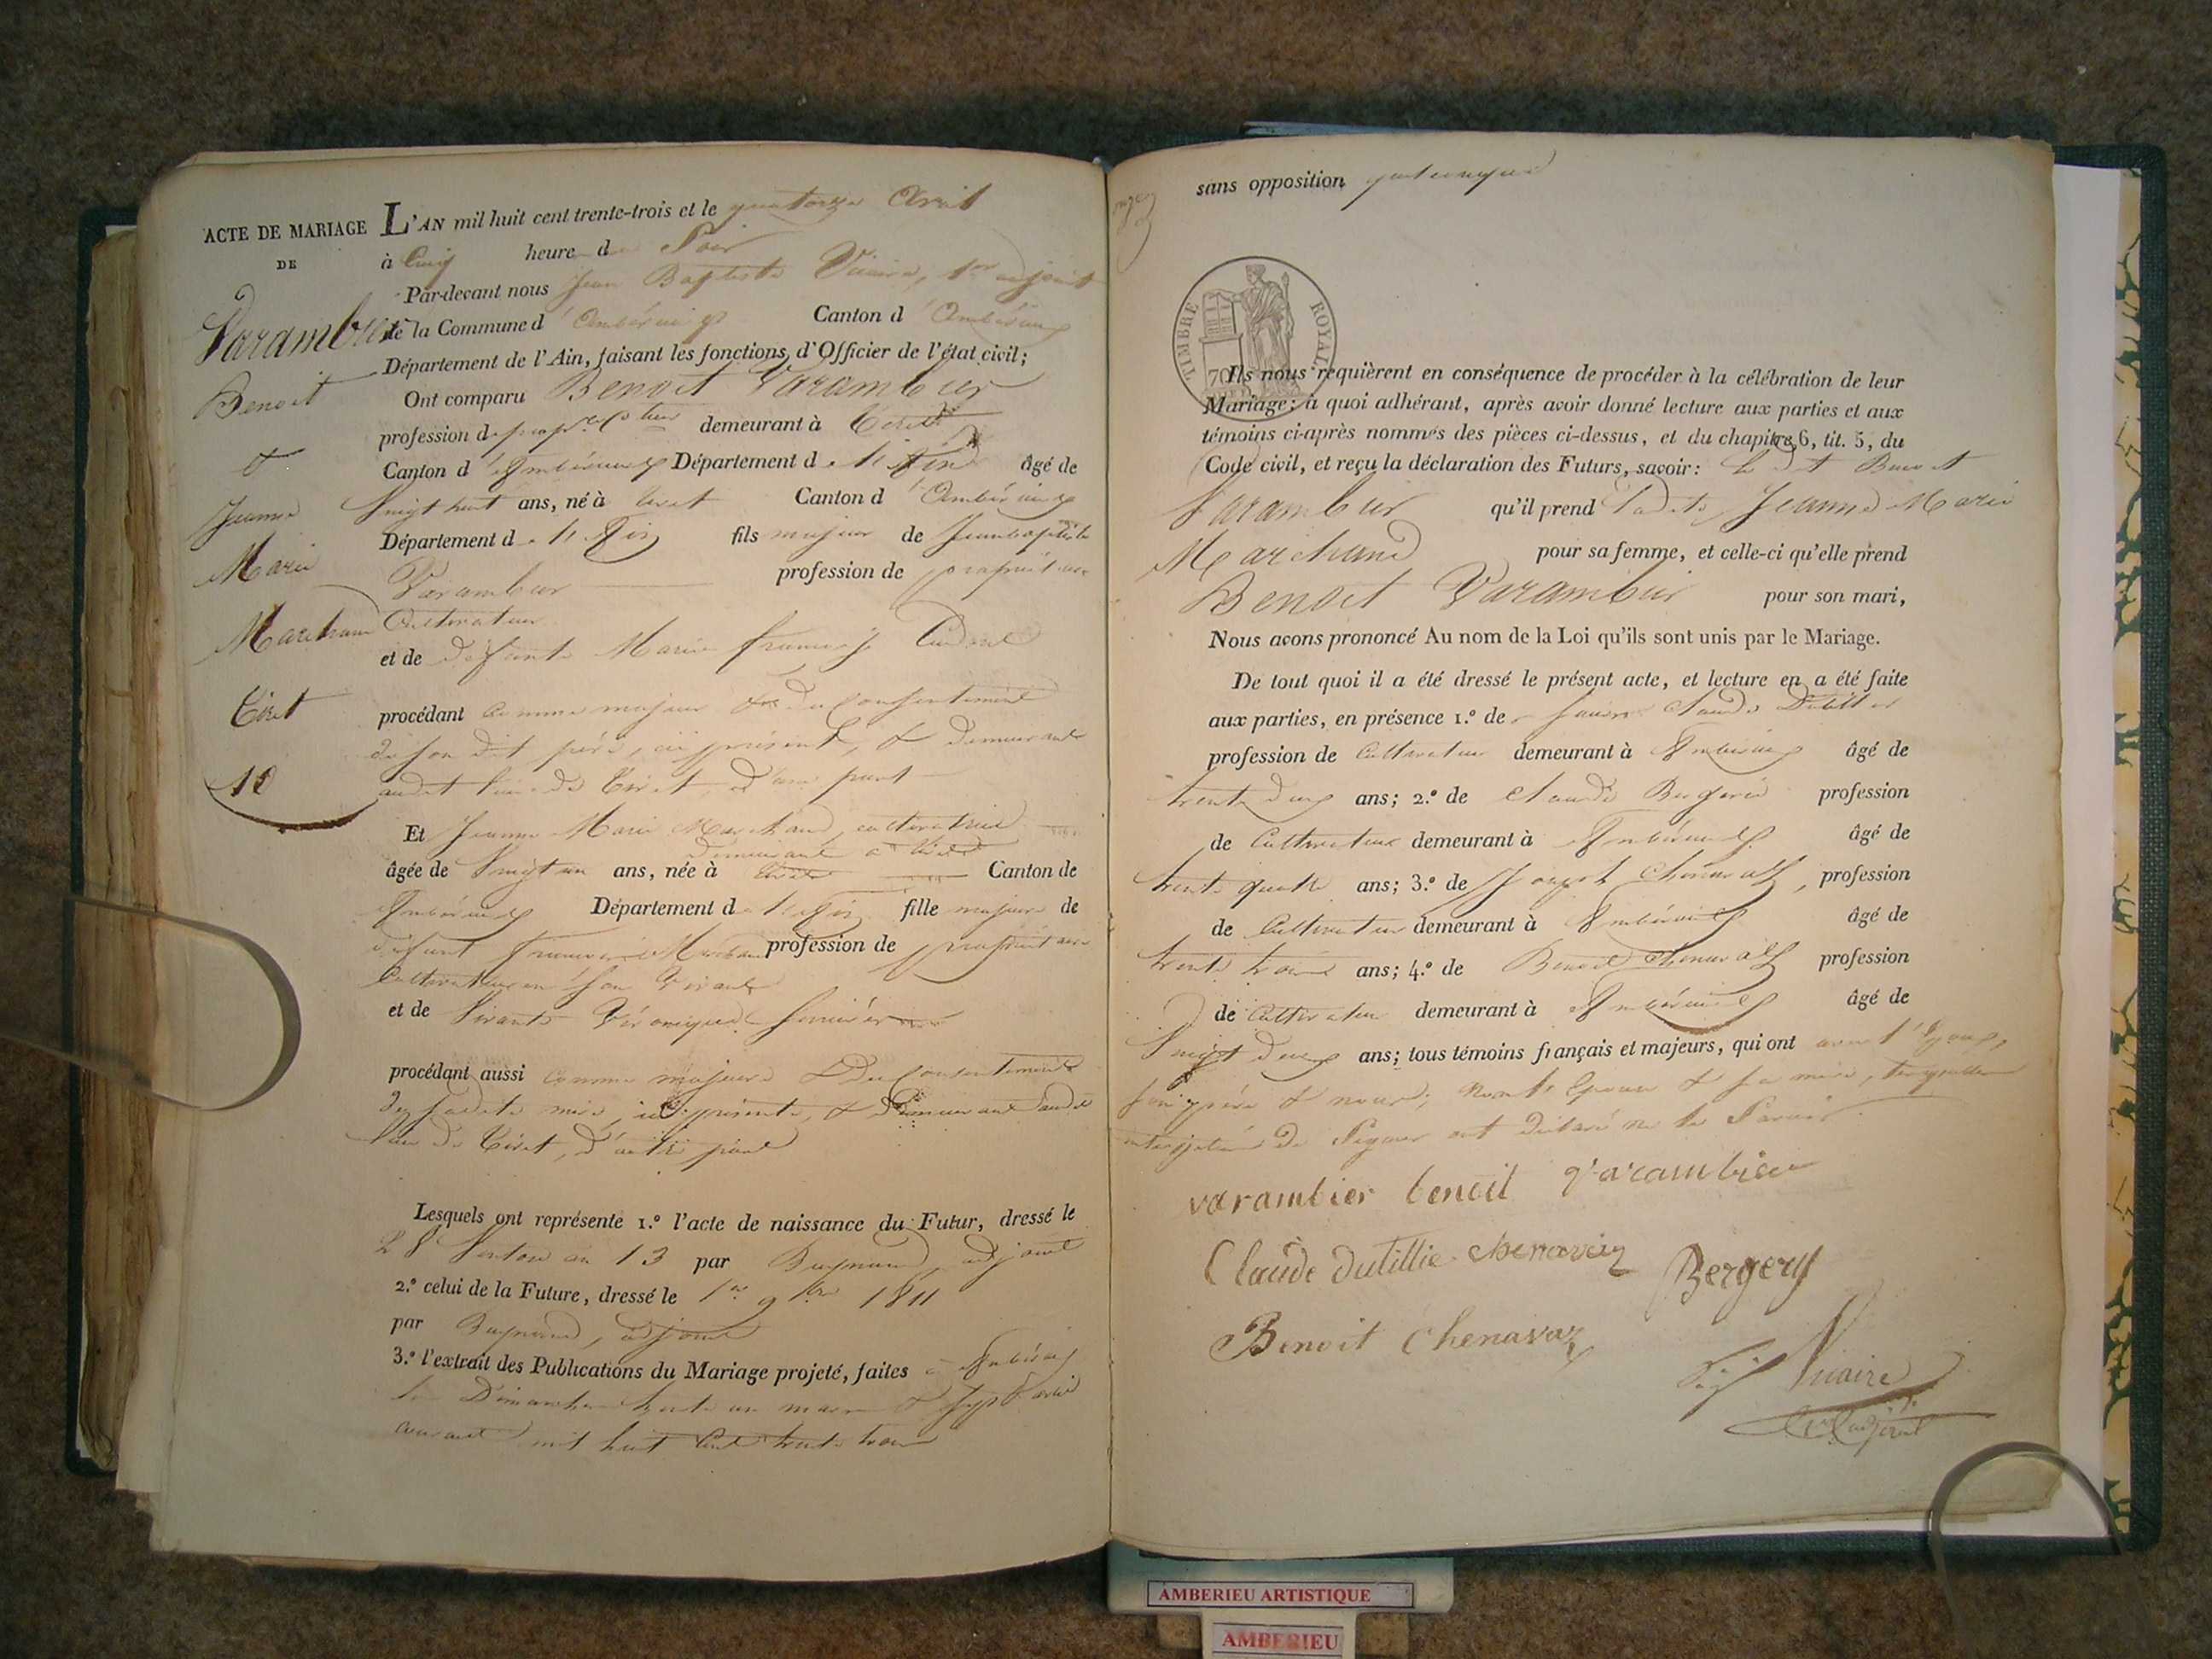 ACTE DE MARIAGE
DE
Varambier
Benoit
&
Jeanne
Marie
Marchand
Tiret
10
L'AN mil huit cent trente-trois et le quatorze Avril
à Cinq heure du Soir
Par-devant nous Jean Baptiste Vicaire, 1er adjoint
de la Commune d'Ambérieux Canton d'Ambérieux
Département de l'Ain, faisant les fonctions d'Officier de l'état civil;
Ont comparu Benoit Varambier
profession de demeurant à Tiret
Canton d'Ambérieux Département de l'Ain âgé de
Vingt huit ans, né à Tiret Canton d'Ambérieux
Département de l'Ain fils majeur de Jean baptiste
Varambier profession de propriétaire
Cultivateur
et de défunte Marie françoise
procédant comme majeur & du consentement
de son dit père, ici présent, & demeurant
audit lieu de Tiret, d'une part
Et Jeanne Marie Marchand, cultivatrice
demeurant à Tiret
âgée de Vingt un ans, née à Tiret Canton de
Ambérieux Département de l'Ain fille majeure de
défunt Marchand profession de propriétaire
Cultivateur en son vivant
et de vivante Véronique
procédant aussi comme majeure & du consentement
de sadite mère, ici présente, & demeurant audit
lieu de Tiret, d'autre part
Lesquels ont représenté 1.º l'acte de naissance du Futur, dressé le
28 Ventose an 13 par adjoint
2.º celui de la Future, dressé le 1er 9bre 1811
par adjoint
3.º l'extrait des Publications du Mariage projeté, faites à Ambérieux
les Dimanches trente un mars & sept avril
courant mil huit Cent trente trois
sans opposition quelconque
TIMBRE ROYAL
70
Ils nous requièrent en conséquence de procéder à la célébration de leur
Mariage; à quoi adhérant, après avoir donné lecture aux parties et aux
témoins ci-après nommés des pièces ci-dessus, et du chapitre 6, tit. 5, du
Code civil, et reçu la déclaration des Futurs, savoir: Le dit Benoit
Varambier qu'il prend Ladite Jeanne Marie
Marchand pour sa femme, et celle-ci qu'elle prend
Benoit Varambier pour son mari,
Nous avons prononcé Au nom de la Loi qu'ils sont unis par le Mariage.
De tout quoi il a été dressé le présent acte, et lecture en a été faite
aux parties, en présence 1.º de Claude
profession de Cultivateur demeurant à Ambérieux âgé de
trente deux ans; 2.º de Claude profession
de Cultivateur demeurant à Ambérieux âgé de
trente quatre ans; 3.º de Joseph Chenavaz, profession
de Cultivateur demeurant à Ambérieux âgé de
trente trois ans; 4.º de Benoit Chenavaz profession
de Cultivateur demeurant à Ambérieux âgé de
Vingt deux ans; tous témoins français et majeurs, qui ont avec l'Epoux,
son père & nous; non l'Epouse & sa mère, lesquelles
interpellées de Signer ont déclaré ne le Savoir
varambier benoit varambier
Claude dutillie chenavaz Bergery
Benoit Chenavaz
Vicaire
adjoint
AMBERIEU ARTISTIQUE
AMBERIEU